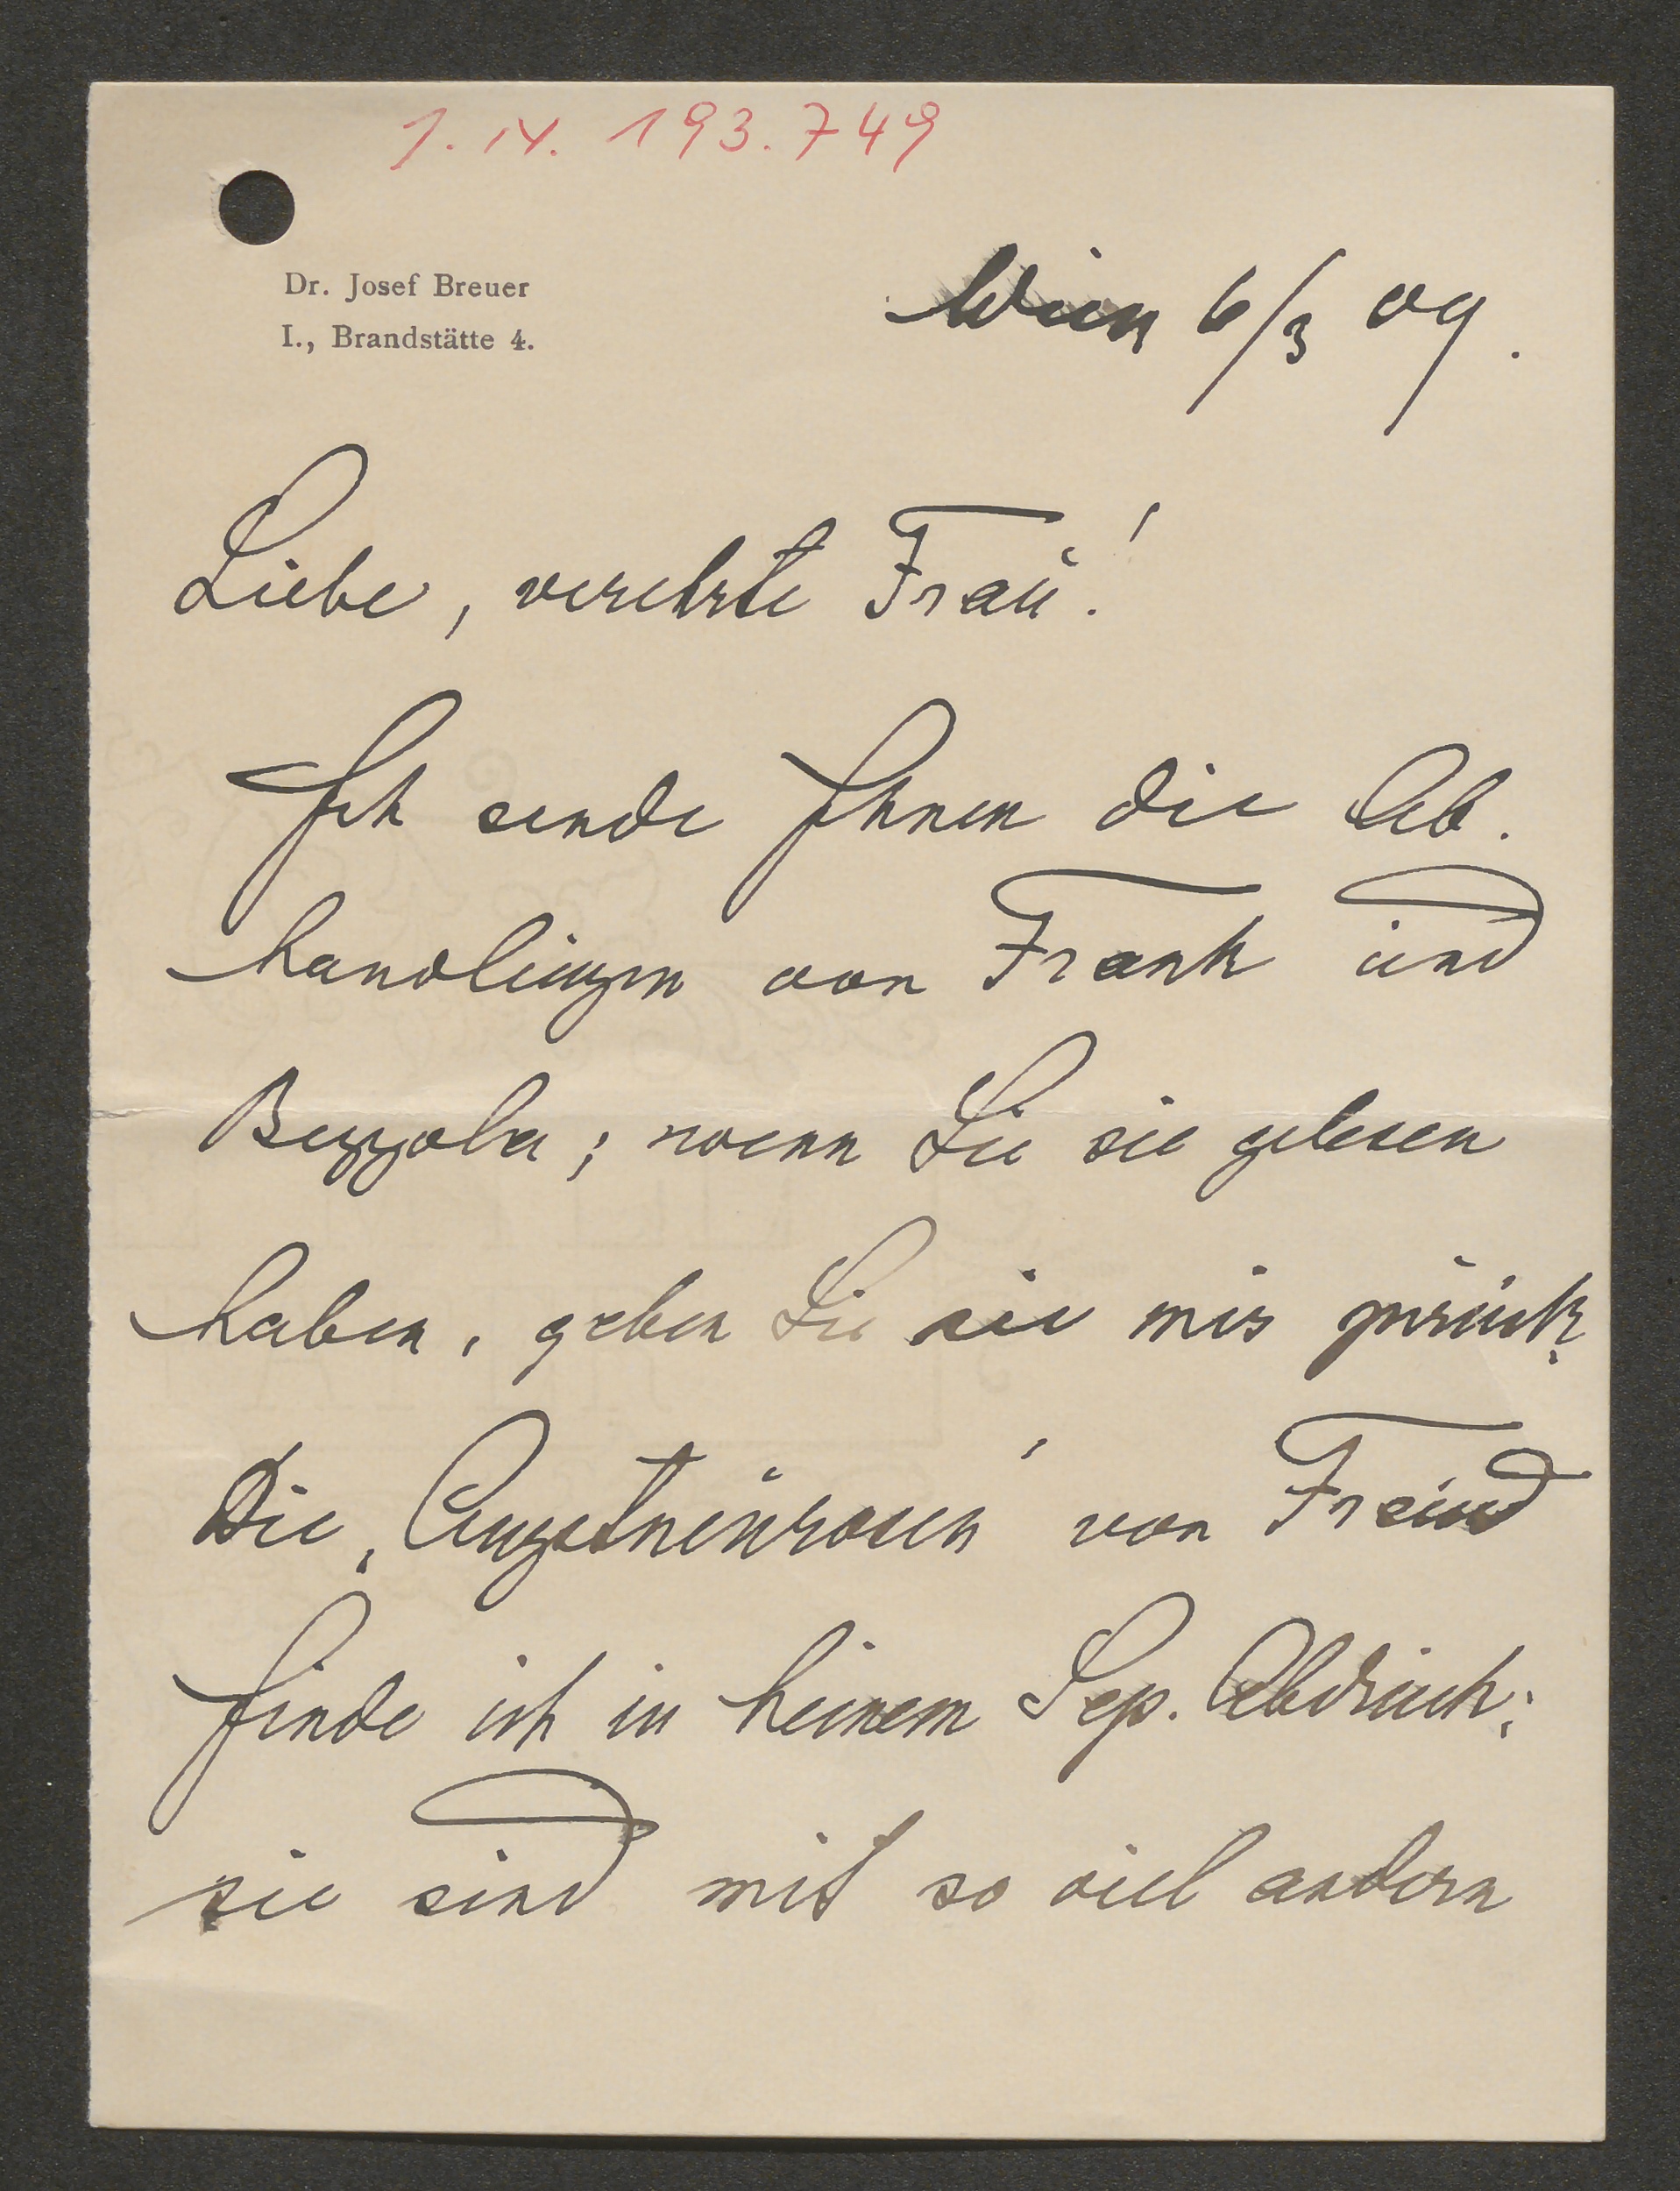 1. IV. 193.749
Dr. Josef Breuer
I., Brandstätte 4.
Wien 6/3 09.
Liebe, verehrte Frau!
Ich sende Ihnen die Ab-
handlungen von Frank und
Bezzola; wenn Sie sie gelesen
haben, geben Sie sie mir zurück.
Die „Angstneurosen" von Freud
finde ich in keinem Sep. Abdruck;
sie sind mit so viel andern